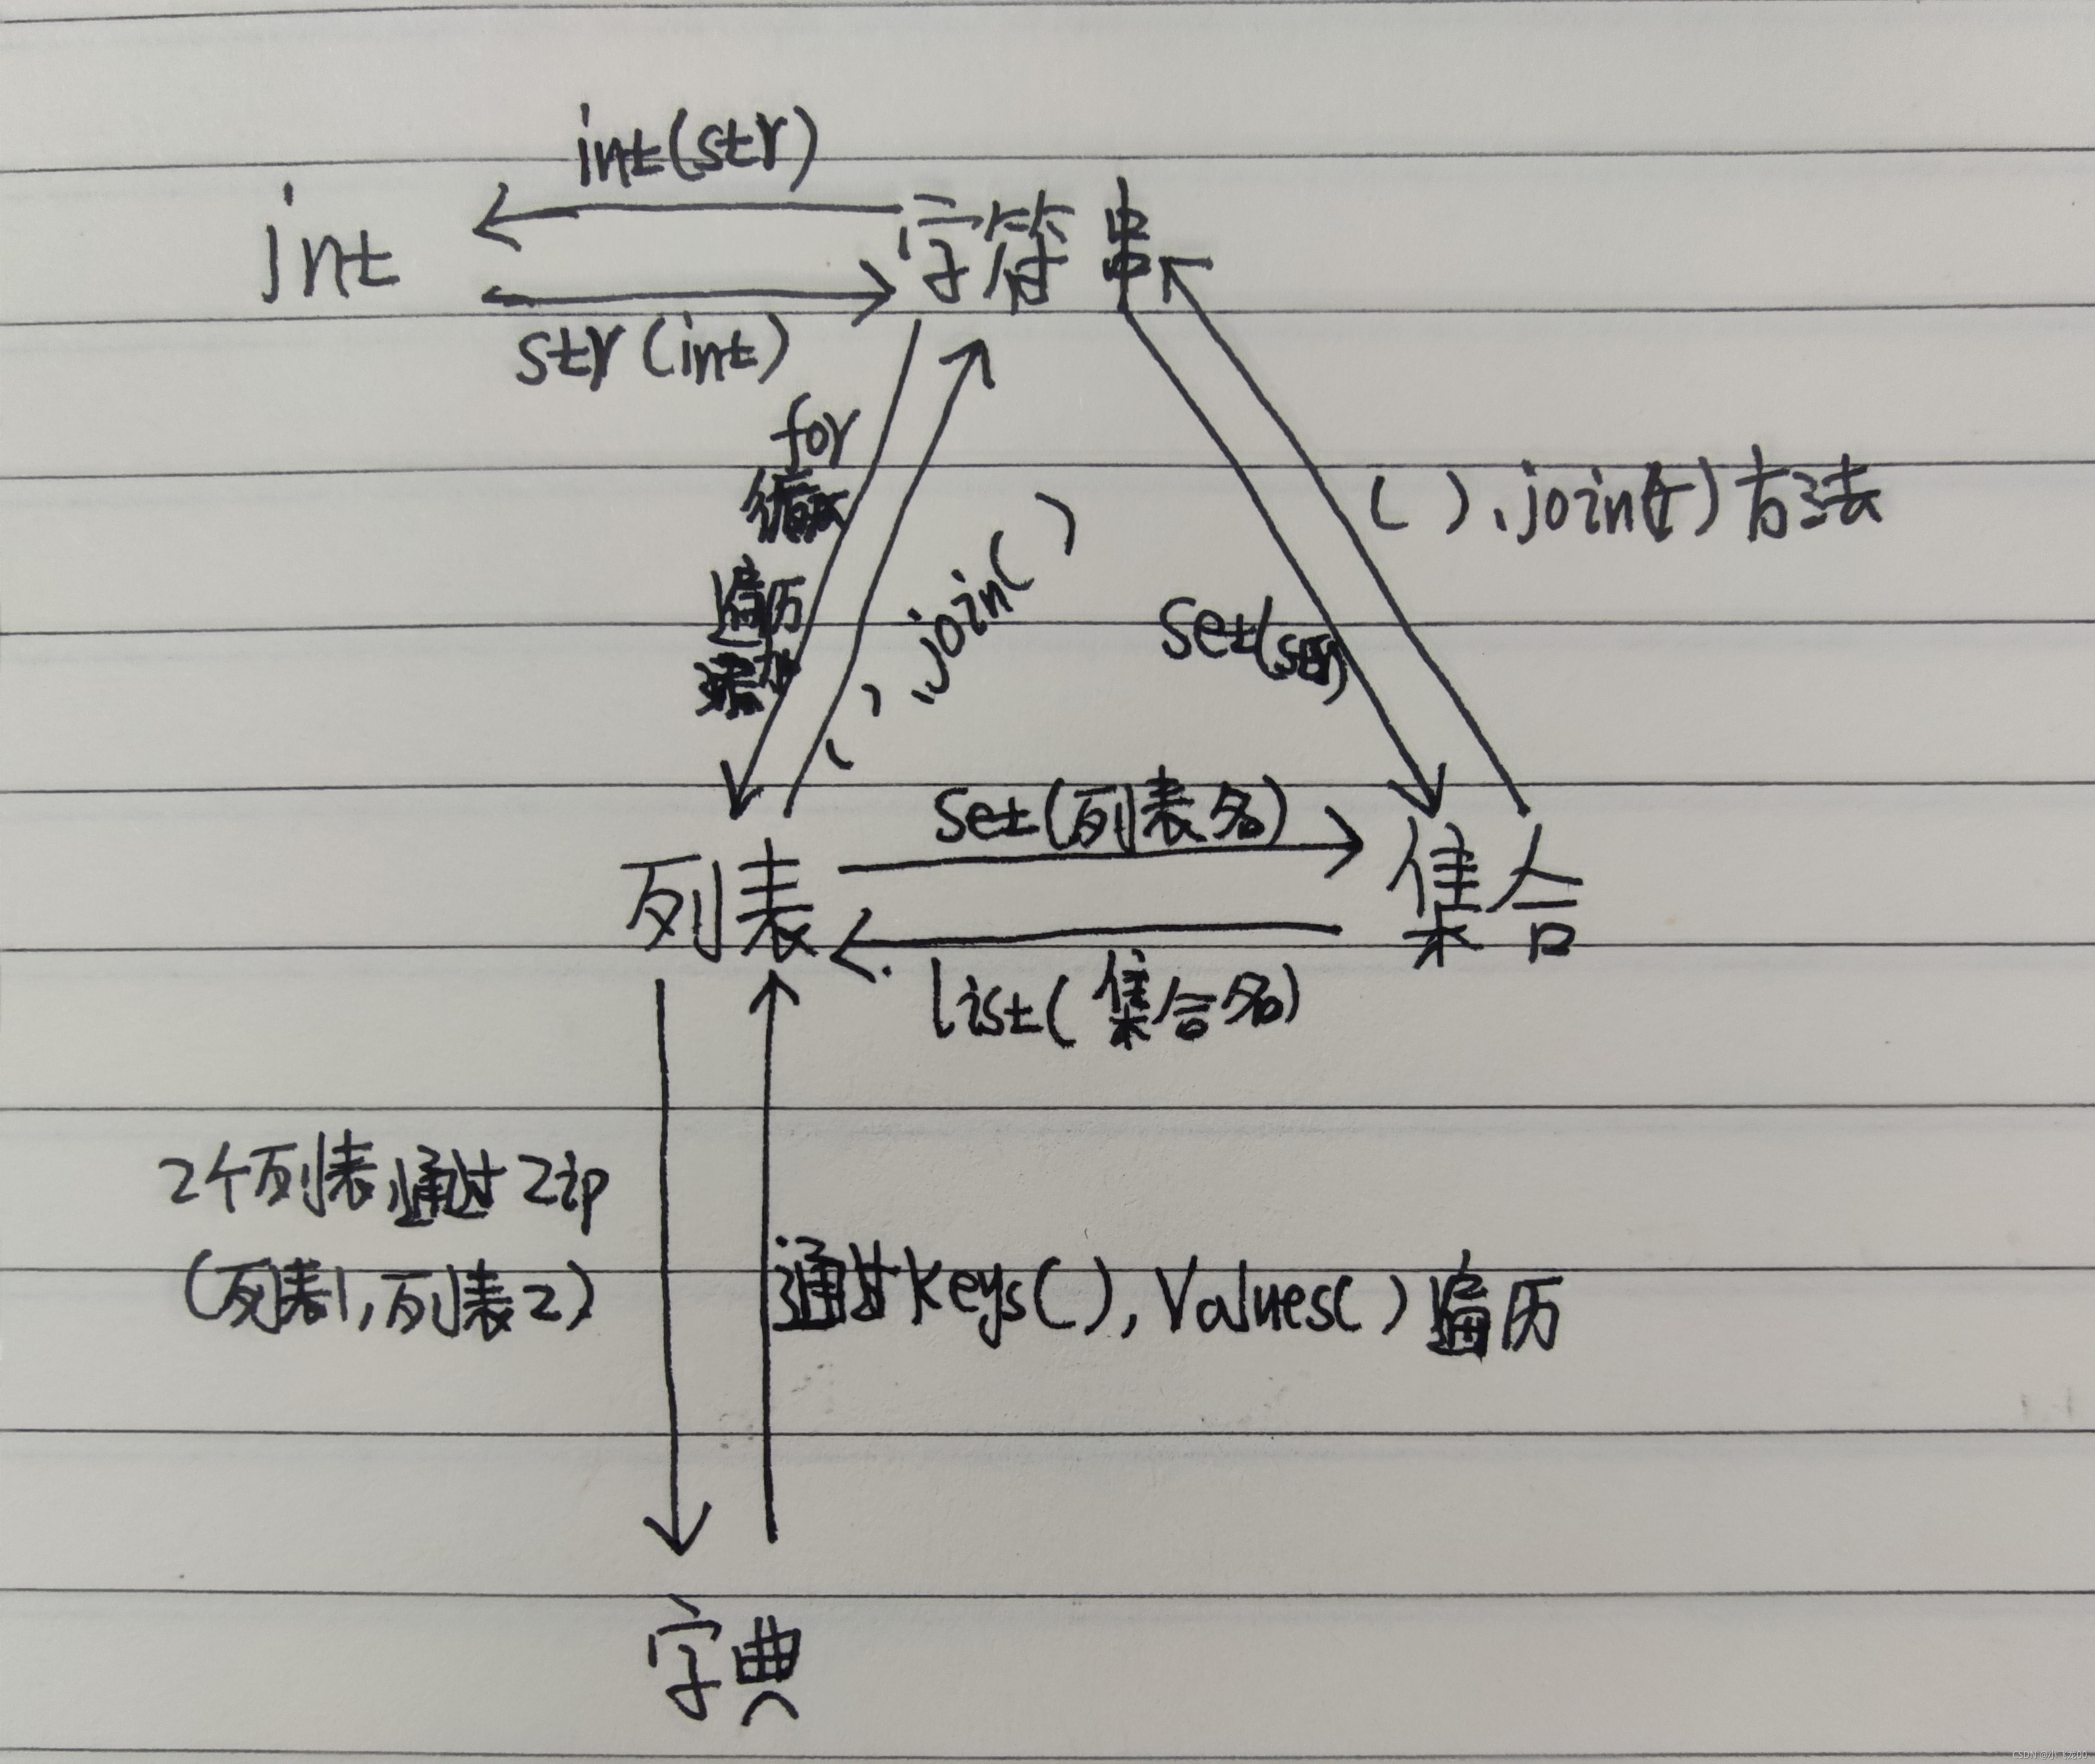 int(str)
int
字符串
str(int)
for
循环
遍历
添加
( ).join( )
( ).join( )方法
set(str)
set(列表名)
列表
集合
list(集合名)
2个列表通过zip
(列表1,列表2)
通过keys(),values()遍历
字典